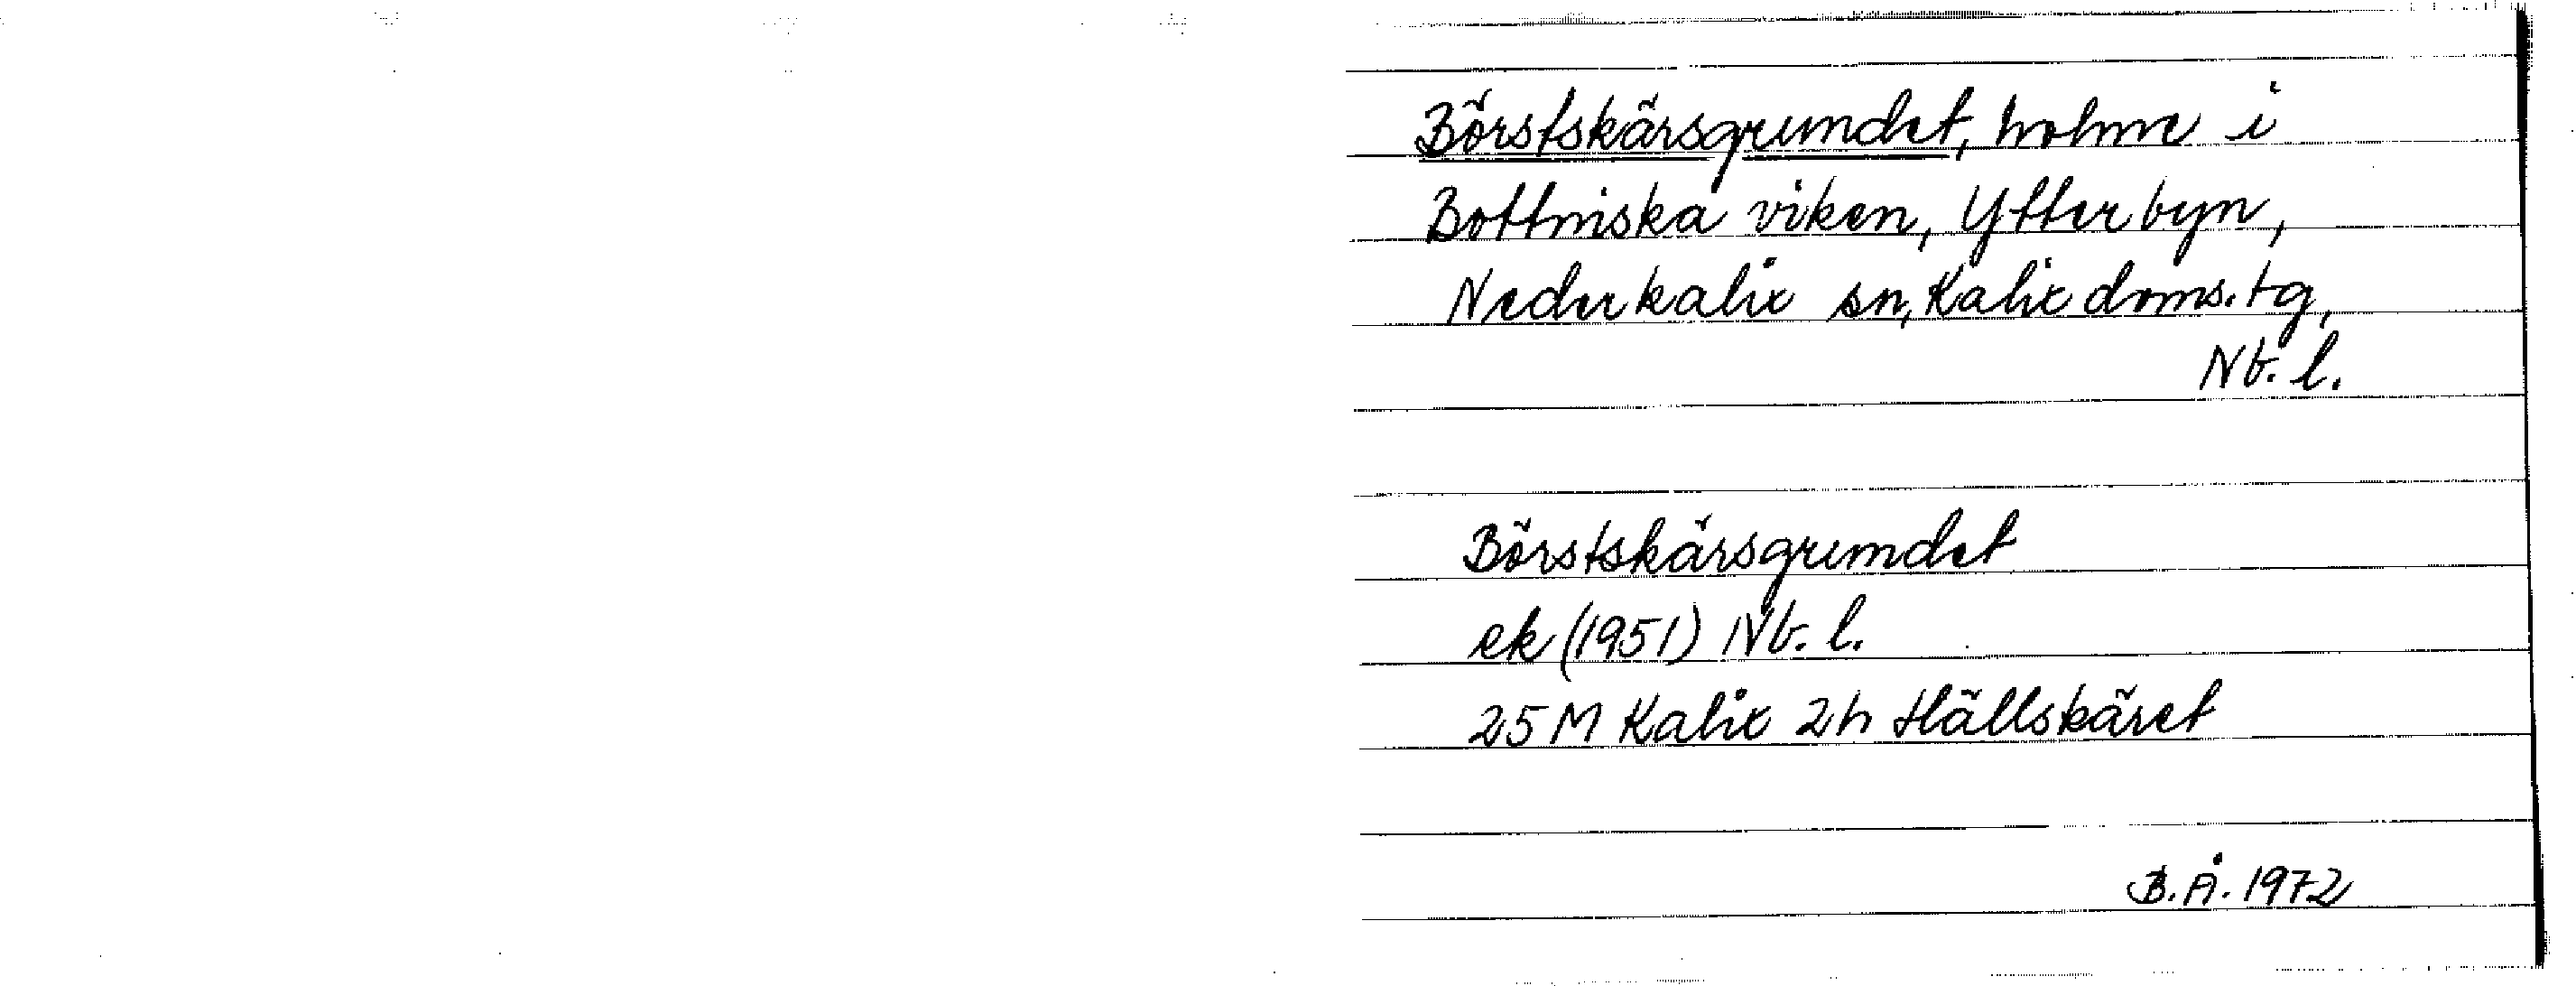 Börstskärsgrundet, holme i
Bottniska viken, Ytterbyn,
Nederkalix sn, Kalix doms. tg,
Nb. l.
Börstskärsgrundet
ek (1951) Nb. l.
25 M Kalix 2h Hällskäret
B.Å. 1972